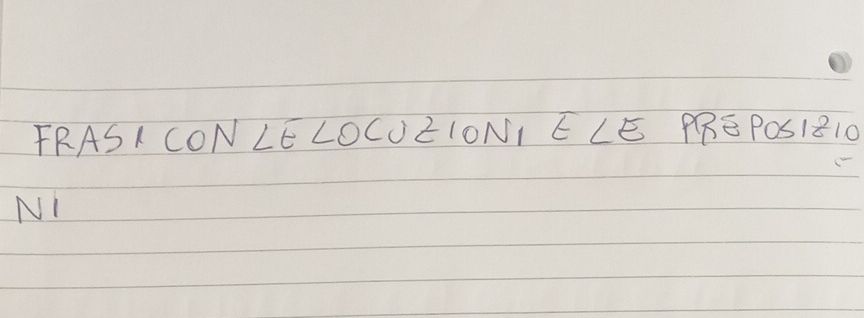 FRASI CON LE LOCUZIONI E LE PREPOSIZIO-
NI